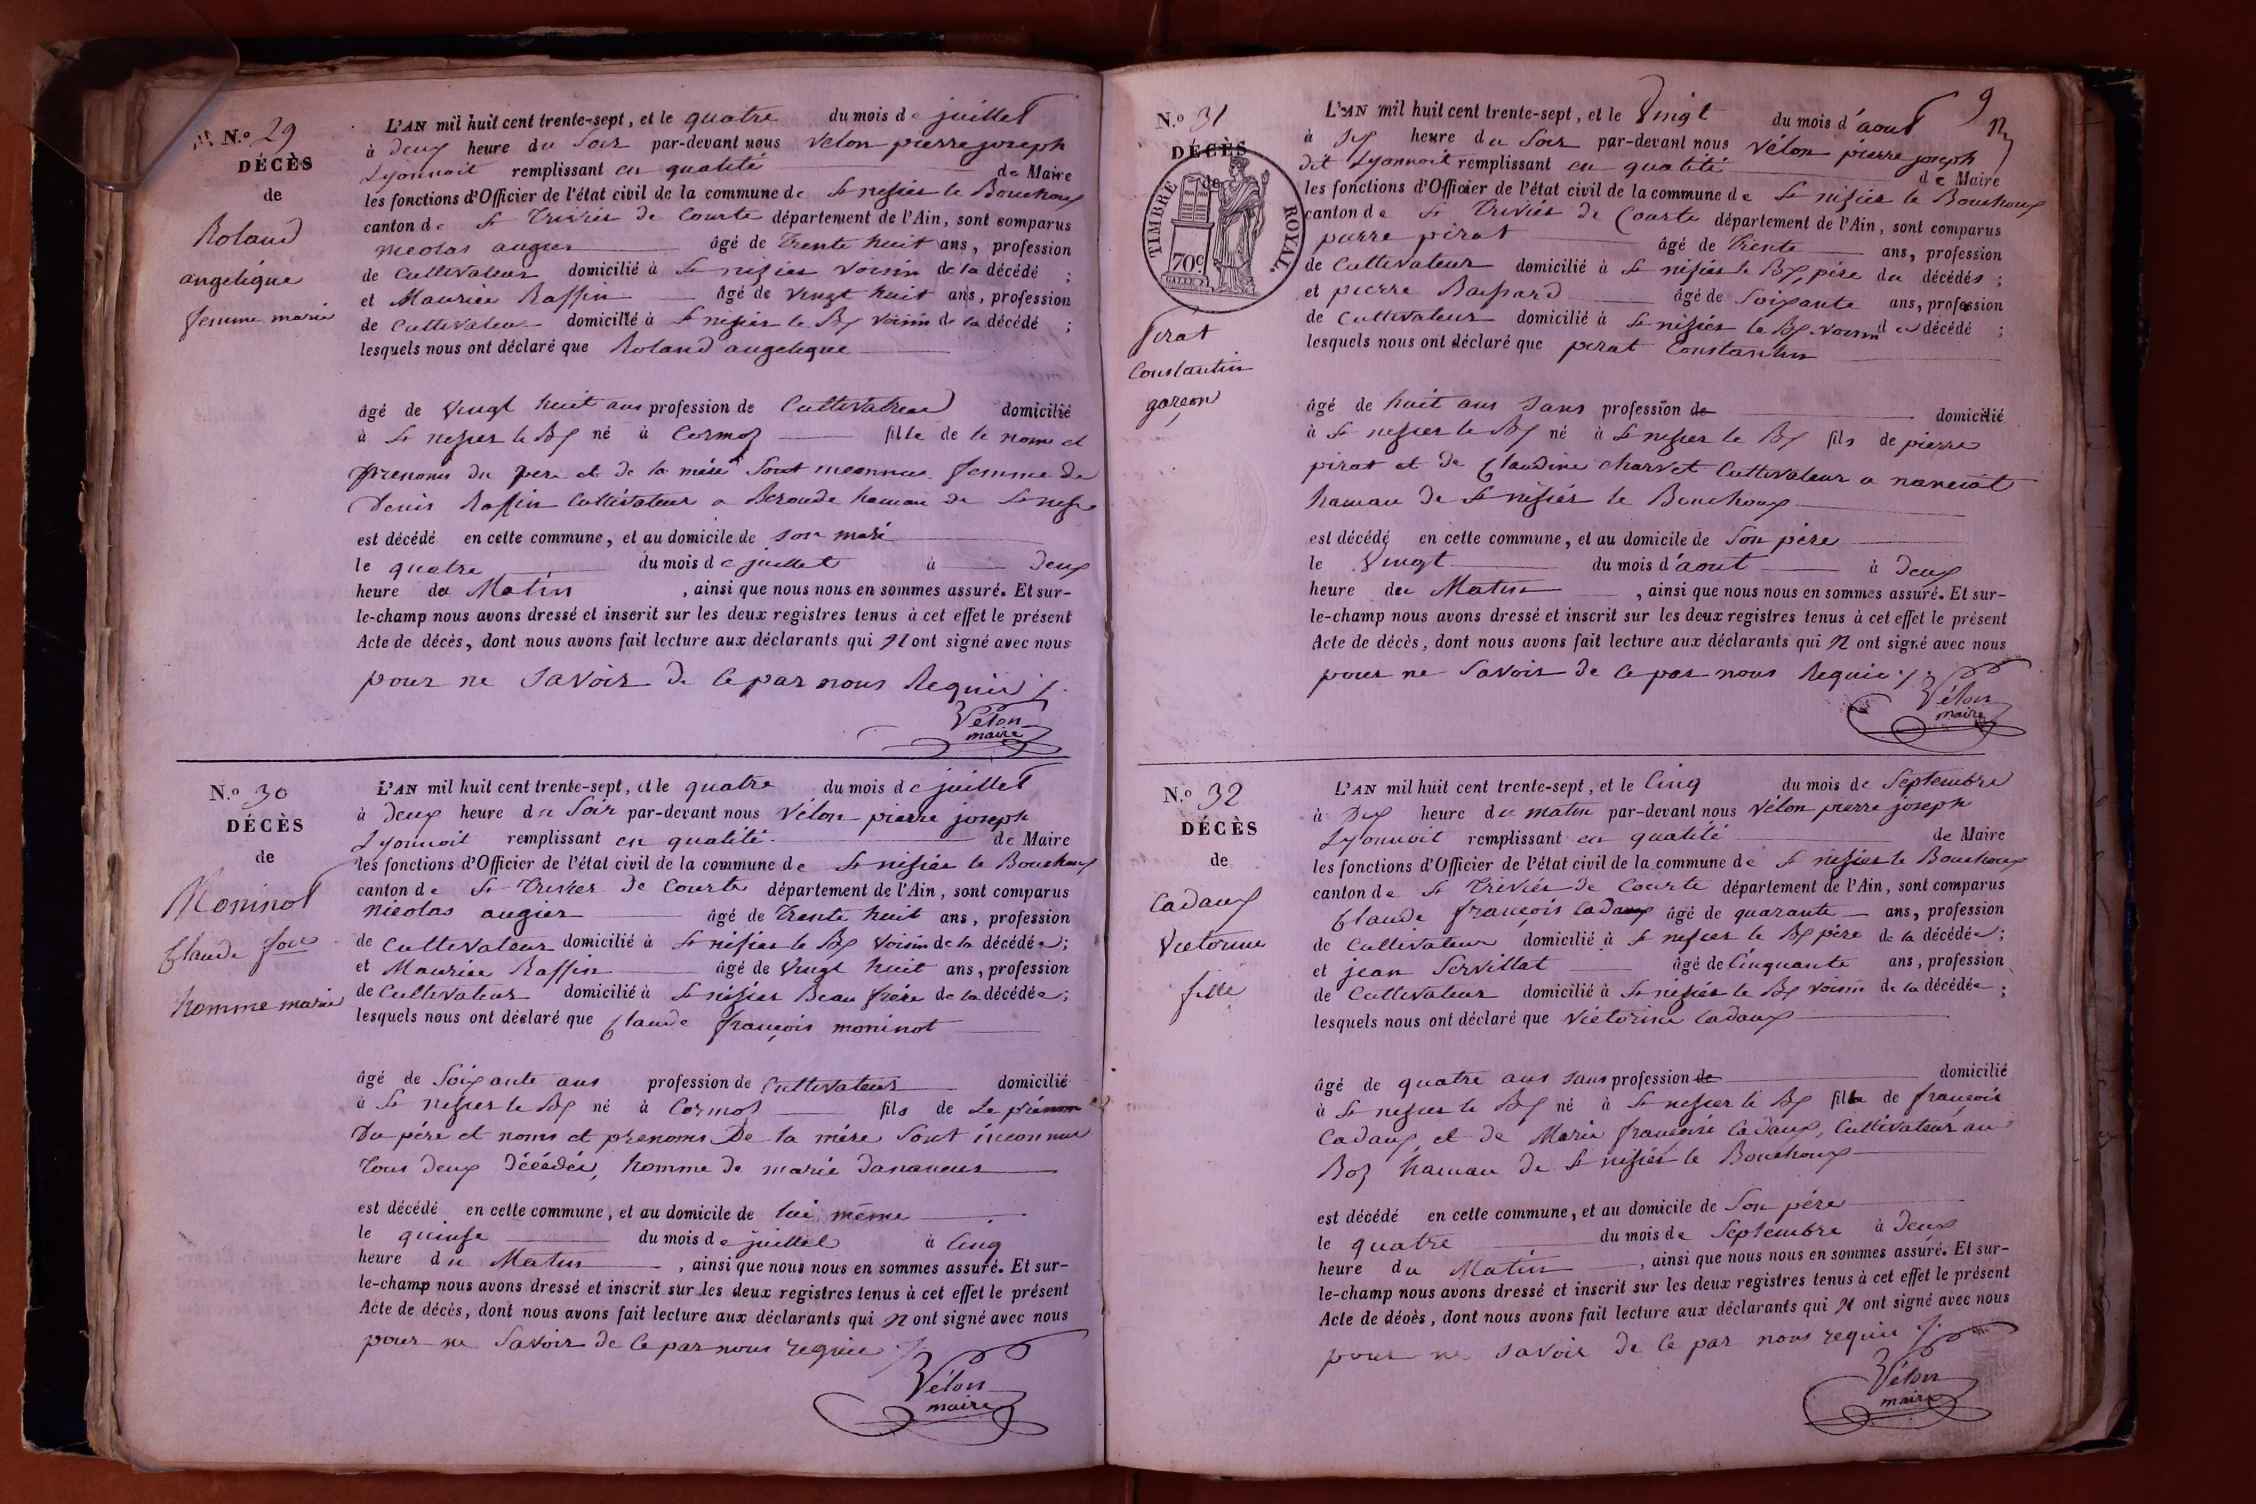 N.º 29
DÉCÈS
de
Roland
angelique
femme marié
L'AN mil huit cent trente-sept, et le quatre du mois de juillet
à deux heure du Soir par-devant nous Vélon pierre joseph
Lyonnoit remplissant en qualité de Maire
les fonctions d'Officier de l'état civil de la commune de St nisier le Bouchoux
canton de St Trivier de Courte département de l'Ain, sont comparus
nicolas augier âgé de Trente huit ans, profession
de Cultivateur domicilié à St nisier voisin de la décédé ;
et Maurice Raffin âgé de vingt huit ans, profession
de Cultivateur domicilié à St nisier le Bx voisin de la décédé ;
lesquels nous ont déclaré que Roland angelique
âgé de vingt huit ans profession de Cultivatrice domicilié
à St nisier le Bx né à Cormoz fille de le noms et
prenoms du pere et de la mére Sont inconnus femme de
Denis Raffin Cultivateur a Beroude hameau de St nisier
est décédé en cette commune, et au domicile de son mari
le quatre du mois de juillet à Deux
heure du Matin , ainsi que nous nous en sommes assuré. Et sur-
le-champ nous avons dressé et inscrit sur les deux registres tenus à cet effet le présent
Acte de décès, dont nous avons fait lecture aux déclarants qui N ont signé avec nous
pour ne Savoir de ce par nous Requis ./.
Vélon
maire
N.º 30
DÉCÈS
de
Moninot
Claude fois
homme marié
L'AN mil huit cent trente-sept, et le quatre du mois de juillet
à deux heure du Soir par-devant nous Vélon pierre joseph
Lyonnoit remplissant en qualité de Maire
les fonctions d'Officier de l'état civil de la commune de St nisier le Bouchoux
canton de St Trivier de Courte département de l'Ain, sont comparus
nicolas augier âgé de Trente huit ans, profession
de Cultivateur domicilié à St nisier le Bx Voisin de la décédée ;
et Maurice Raffin âgé de Vingt huit ans, profession
de Cultivateur domicilié à St nisier Beau frére de la décédée ;
lesquels nous ont déclaré que Claude françois moninot
âgé de Soixante ans profession de Cultivateur domicilié
à St nisier le Bx né à Cormoz fils de Le prénom
Du pére et noms et prenoms De la mére Sont inconnus
Tous deux décédés, homme de marié
est décédé en cette commune, et au domicile de lui même
le quinse du mois de juillet à Cinq
heure du Matin , ainsi que nous nous en sommes assuré. Et sur-
le-champ nous avons dressé et inscrit sur les deux registres tenus à cet effet le présent
Acte de décès, dont nous avons fait lecture aux déclarants qui N ont signé avec nous
pour ne Savoir de ce par nous requis ./.
Vélon
maire
9
N.º 31
DÉCÈS
de
TIMBRE ROYAL.
70 c
Pirat
Constantin
garçon
L'AN mil huit cent trente-sept, et le Vingt du mois d'aout
à Six heure du Soir par-devant nous Vélon pierre joseph
dit Lyonnoit remplissant en qualité de Maire
les fonctions d'Officier de l'état civil de la commune de St nisier le Bouchoux
canton de St Trivier de Courte département de l'Ain, sont comparus
pierre pirat âgé de Trente ans, profession
de Cultivateur domicilié à St nisier le Bx, pére du décédés ;
et pierre âgé de Soixante ans, profession
de Cultivateur domicilié à St nisier le Bx voisin d décédé ;
lesquels nous ont déclaré que pirat Constantin
âgé de huit ans Sans profession de domicilié
à St nisier le Bx né à St nisier le Bx fils de pierre
pirat et de Claudine charvet Cultivateur a
hameau de St nisier le Bouchoux
est décédé en cette commune, et au domicile de Son pére
le Vingt du mois d'aout à Deux
heure du Matin , ainsi que nous nous en sommes assuré. Et sur-
le-champ nous avons dressé et inscrit sur les deux registres tenus à cet effet le présent
Acte de décès, dont nous avons fait lecture aux déclarants qui N ont signé avec nous
pour ne Savoir de ce par nous Requis ./.
Vélon
maire
N.º 32
DÉCÈS
de
Cadaux
Victorine
fille
L'AN mil huit cent trente-sept, et le Cinq du mois de Septembre
à Dix heure du matin par-devant nous Vélon pierre joseph
Lyonnoit remplissant en qualité de Maire
les fonctions d'Officier de l'état civil de la commune de St nisier le Bouchoux
canton de St Trivier de Courte département de l'Ain, sont comparus
Claude françois Cadaux âgé de quarante ans, profession
de Cultivateur domicilié à St nisier le Bx pére de la décédée ;
et jean Servillat âgé de Cinquante ans, profession
de Cultivateur domicilié à St nisier le Bx voisin de la décédée ;
lesquels nous ont déclaré que Victorine Cadaux
âgé de quatre ans sans profession de domicilié
à St nisier le Bx né à St nisier le Bx fille de françois
Cadaux et de Marie françoise Cadaux, Cultivateur au
Boz hameau de St nisier le Bouchoux
est décédé en cette commune, et au domicile de Son pére
le quatre du mois de Septembre à Deux
heure du Matin , ainsi que nous nous en sommes assuré. Et sur-
le-champ nous avons dressé et inscrit sur les deux registres tenus à cet effet le présent
Acte de décès, dont nous avons fait lecture aux déclarants qui N ont signé avec nous
pour ne savoir de ce par nous requis ./.
Vélon
maire